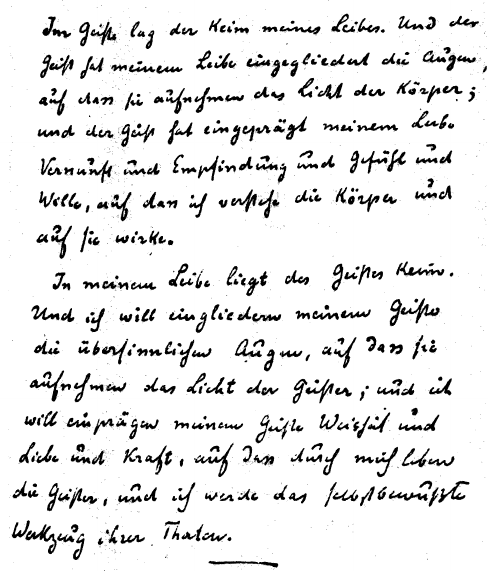 Im Geiste lag der Keim meines Leibes. Und der
Geist hat meinem Leibe eingegliedert die Augen,
auf dass sie aufnehmen das Licht der Körper;
und der Geist hat eingeprägt meinem Leibe
Vernunft und Empfindung und Gefühl und
Wille, auf dass ich verstehe die Körper und
auf sie wirke.
In meinem Leibe liegt des Geistes Keim.
Und ich will eingliedern meinem Geiste
die übersinnlichen Augen, auf dass sie
aufnehmen das Licht der Geister; und ich
will einprägen meinem Geiste Weisheit und
Liebe und Kraft, auf dass durch mich leben
die Geister, und ich werde das selbstbewußte
Werkzeug ihrer Thaten.